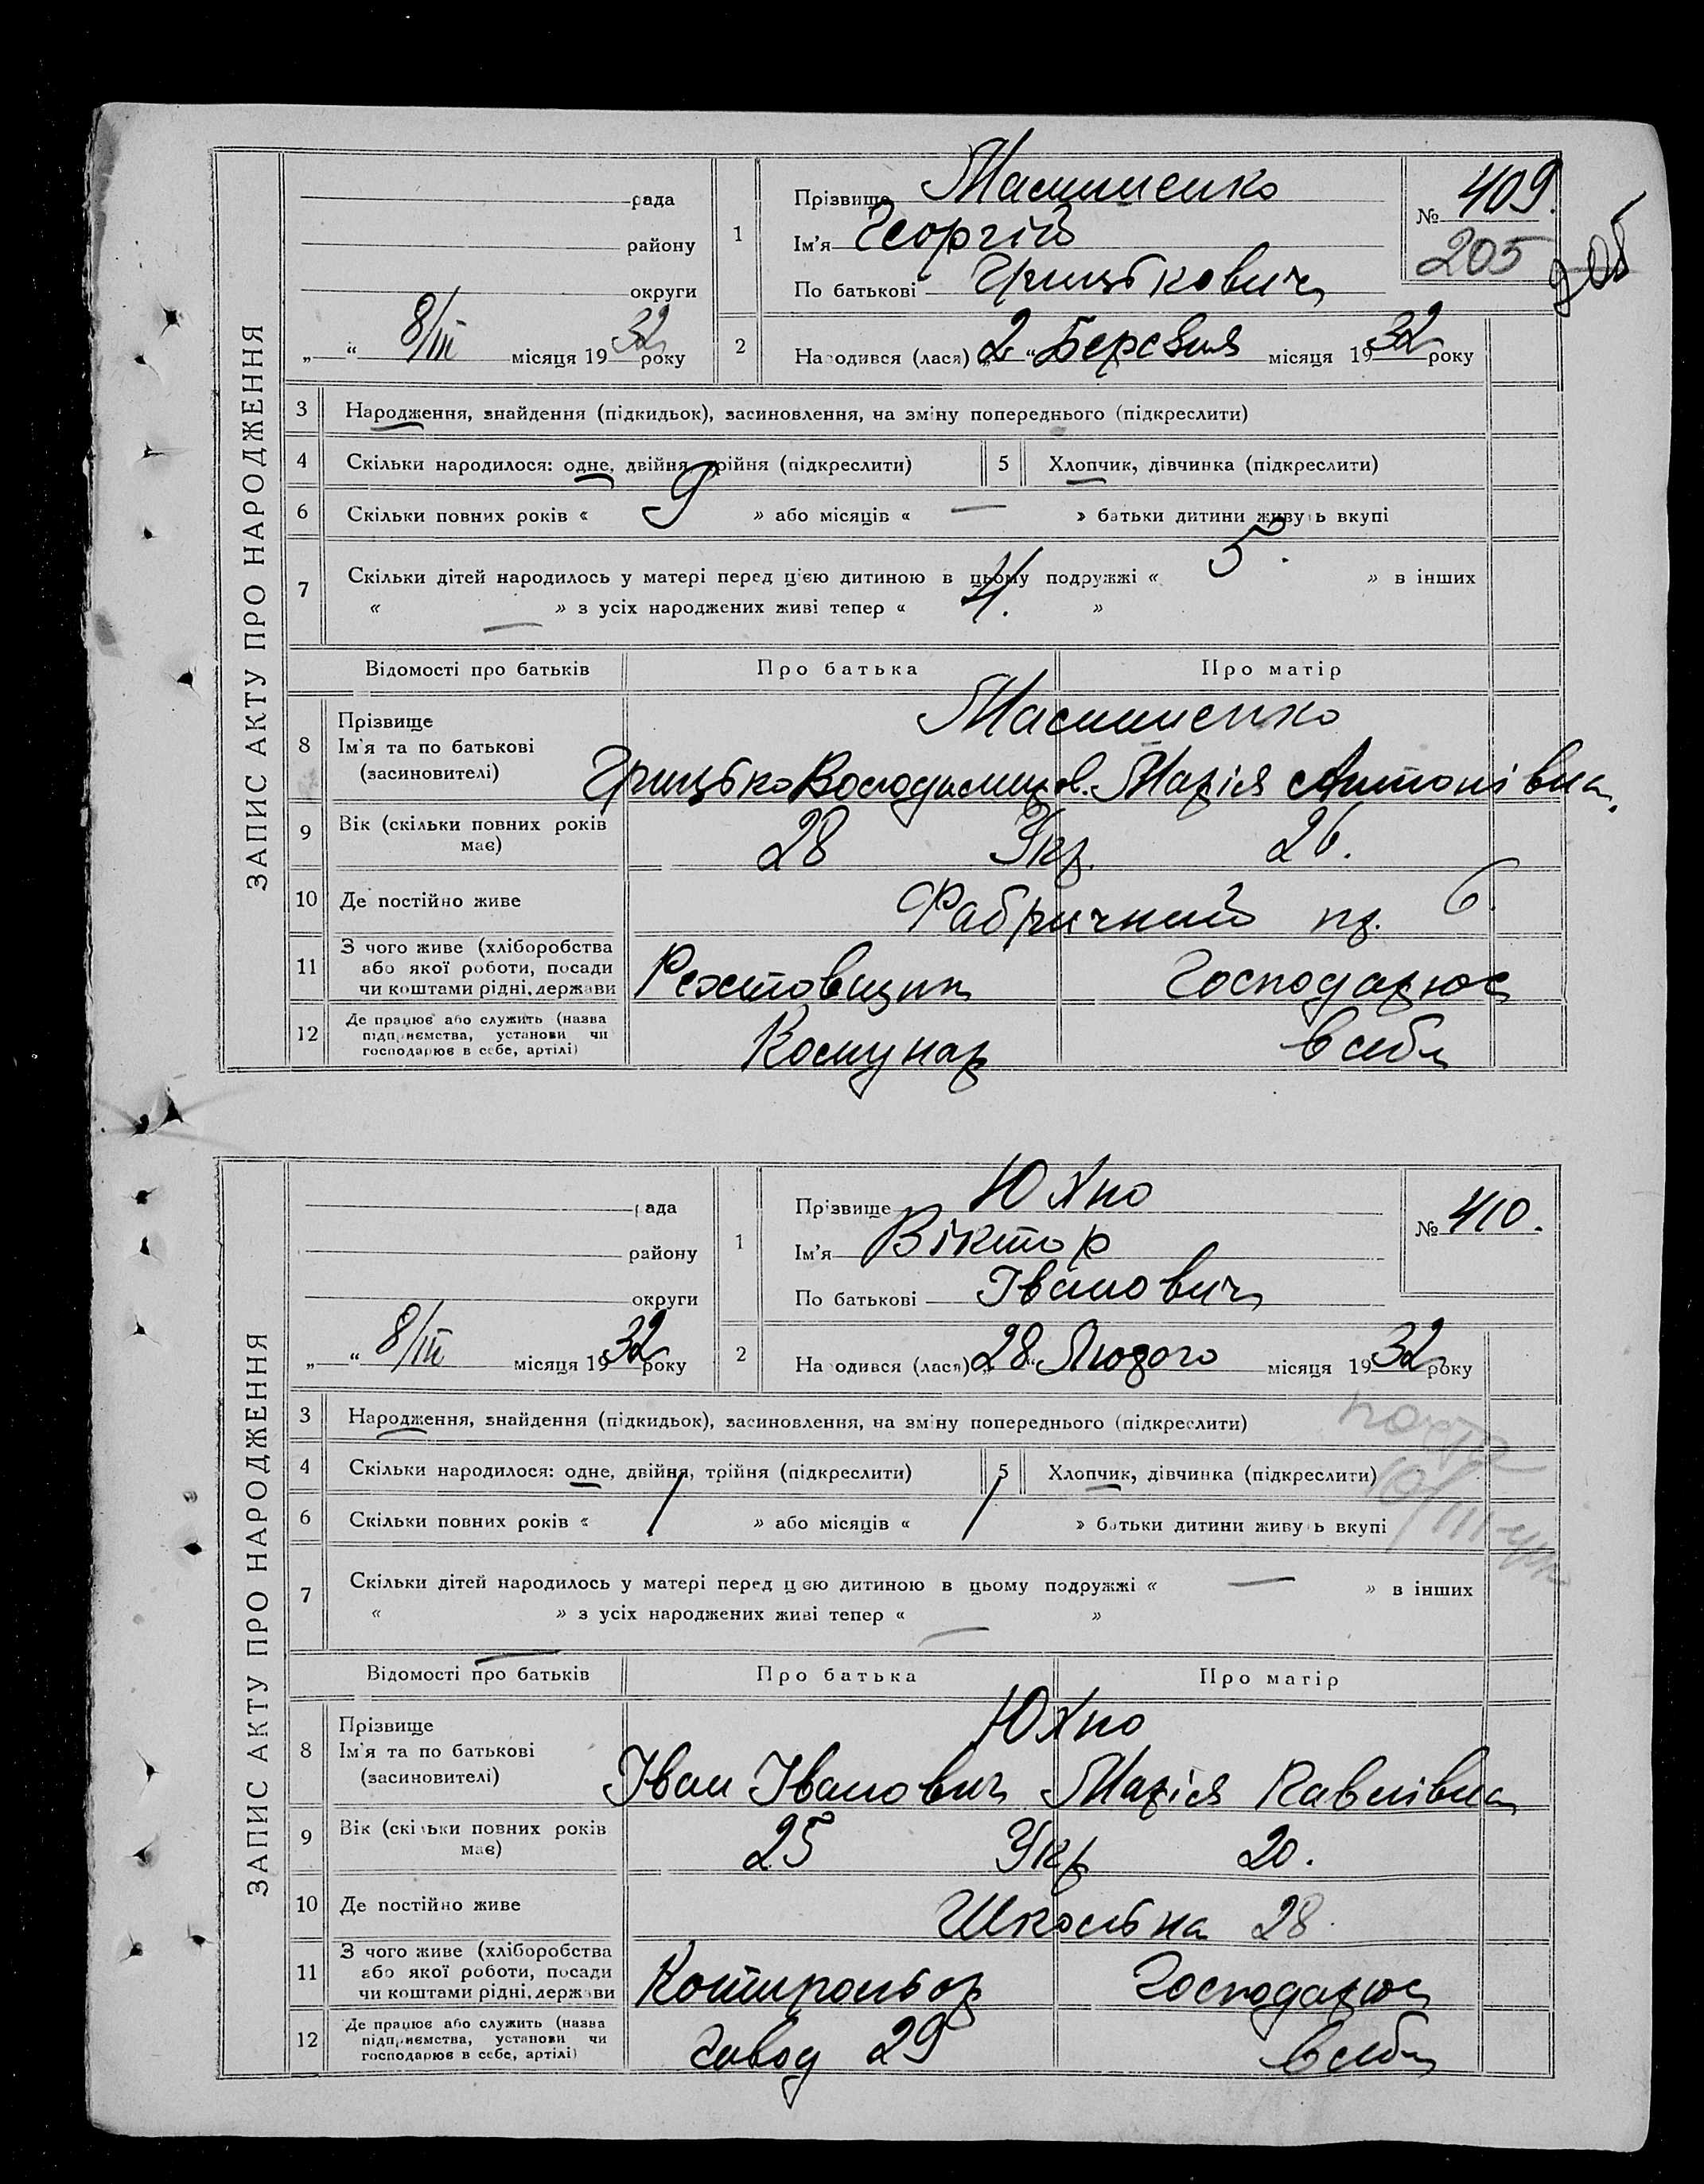 ЗАПИС АКТУ ПРО НАРОДЖЕННЯ
рада
району
округи
„ “ 8/III місяця 1932 року
1
Прізвище Масшненко
Ім'я Георгій
По батькові Грицькович
№ 409.
205
205
2
Народився (лася) „2“ Березня місяця 1932 року
3 Народження, знайдення (підкидьок), засиновлення, на зміну попереднього (підкреслити)
4 Скільки народилося: одне, двійня, трійня (підкреслити)
5 Хлопчик, дівчинка (підкреслити)
6 Скільки повних років « 9 » або місяців « — » батьки дитини живуть вкупі
7 Скільки дітей народилось у матері перед цією дитиною в цьому подружжі « 5. » в інших
« — » з усіх народжених живі тепер « 4. »
Відомості про батьків Про батька Про матір
8 Прізвище
Ім'я та по батькові
(засиновителі)
Грицько Володимиров. Марія Антонівна.
9 Вік (скільки повних років має) 28 Укр. 26.
10 Де постійно живе Фабричний пр. 6.
11 З чого живе (хліборобства або якої роботи, посади чи коштами рідні, держави Господарює
12 Де працює або служить (назва підприємства, установи чи господарює в себе, артілі) Комунар в себе
ЗАПИС АКТУ ПРО НАРОДЖЕННЯ
рада
району
округи
„ “ 8/III місяця 1932 року
1
Прізвище Юхно
Ім'я Віктор
По батькові Іванович
№ 410.
2
Народився (лася) „28“ Лютого місяця 1932 року
3 Народження, знайдення (підкидьок), засиновлення, на зміну попереднього (підкреслити)
4 Скільки народилося: одне, двійня, трійня (підкреслити)
5 Хлопчик, дівчинка (підкреслити)
6 Скільки повних років « 1 » або місяців « 1 » батьки дитини живуть вкупі
7 Скільки дітей народилось у матері перед цією дитиною в цьому подружжі « — » в інших
« — » з усіх народжених живі тепер « — »
Відомості про батьків Про батька Про матір
8 Прізвище
Ім'я та по батькові
(засиновителі)
Юхно
Іван Іванович Марія Павлівна
9 Вік (скільки повних років має) 25 Укр 20.
10 Де постійно живе Школьна 28.
11 З чого живе (хліборобства або якої роботи, посади чи коштами рідні, держави Контрольор Господарює
12 Де працює або служить (назва підприємства, установи чи господарює в себе, артілі) Завод 29 в себе